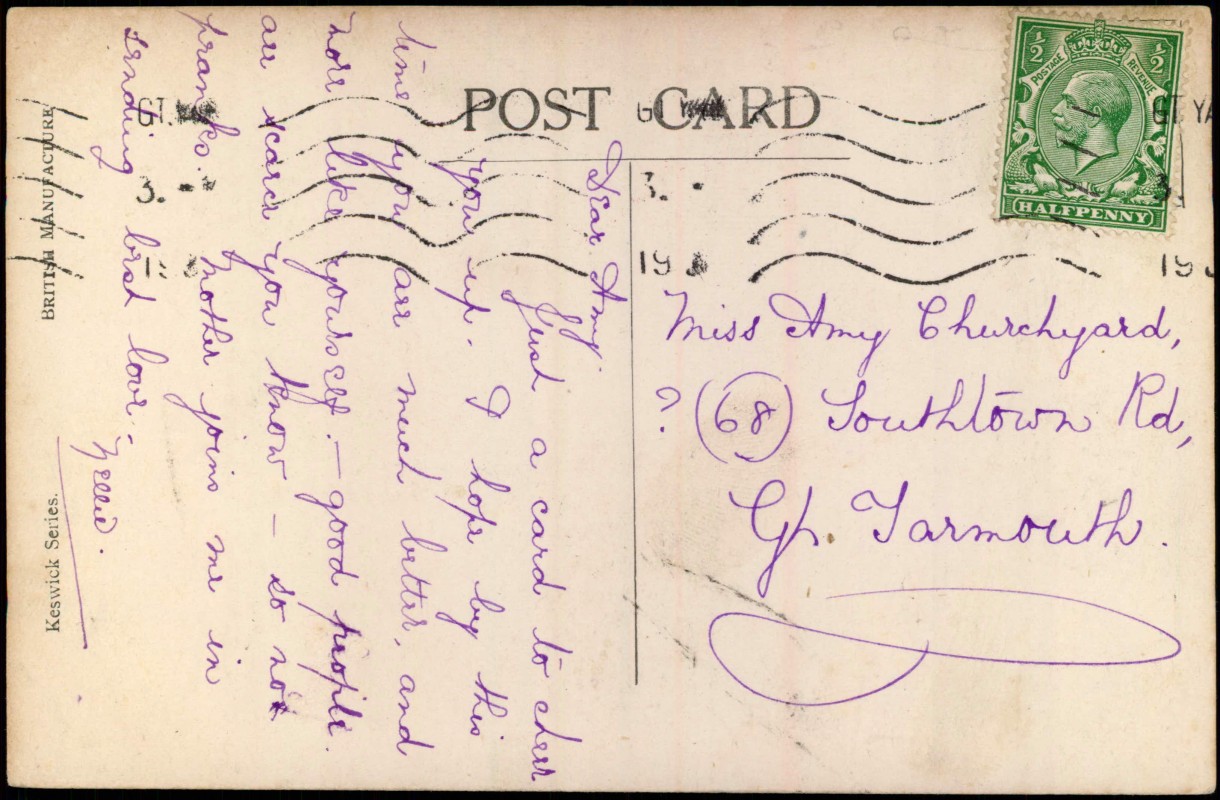 POST CARD
BRITISH MANUFACTURE
Keswick Series.
½ ½
POSTAGE REVENUE
HALFPENNY
GT. YA
Dear Amy.
Just a card to cheer
you up. I hope by this
time you are much better, and
more like yourself. – good people.
are scarce you know – so no
pranks. Mother joins me in
sending best love.
Nellie.
Miss Amy Churchyard,
? (68) Southtown Rd,
Gt. Yarmouth.